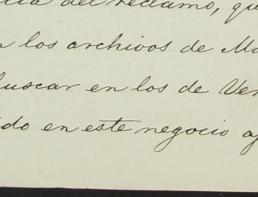 del reclamo, qu
los archivos de Ma
buscar en los de Ver
ido en este negocio a